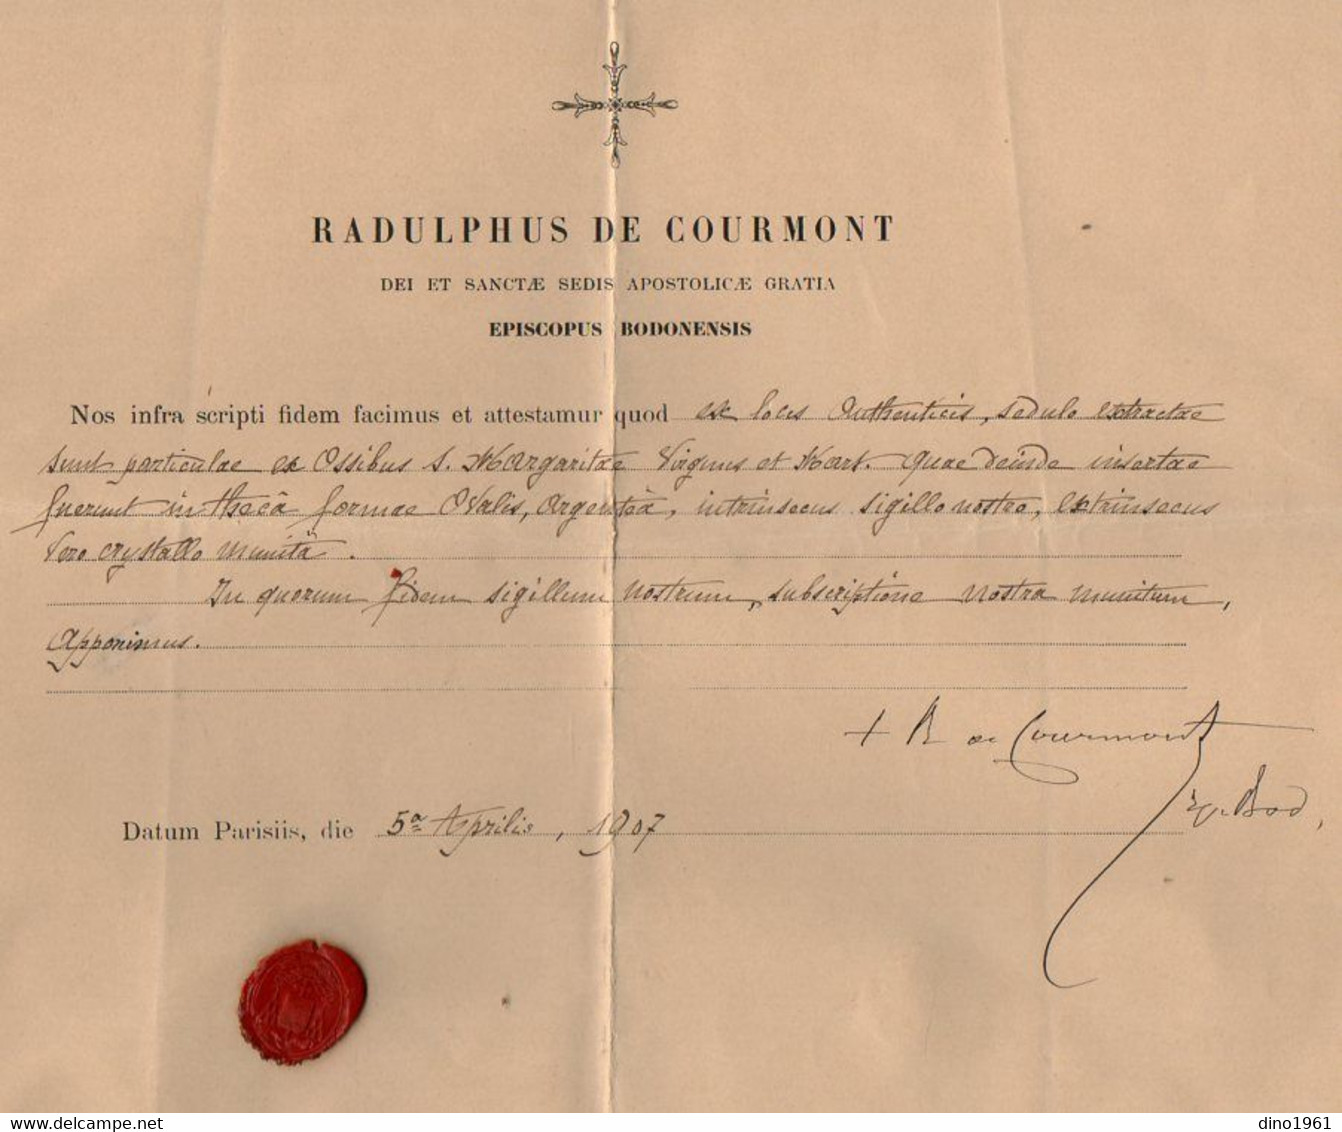 RADULPHUS DE COURMONT
DEI ET SANCTÆ SEDIS APOSTOLICÆ GRATIA
EPISCOPUS BODONENSIS
Nos infra scripti fidem facimus et attestamur quod ex locis Authenticis, sedulo extractae
sunt particulae ex Ossibus S. Margaritae Virginis et Mart. quae deinde insertae
fuerunt in thecâ formae Ovalis, Argenteâ, intrinsecus sigillo nostro, extrinsecus
Vero crystallo munitâ.
In quorum fidem sigillum nostrum, subscriptione nostra munitum,
Apponimus.
+ R de Courmont
Ep. Bod,
Datum Parisiis, die 5a Aprilis, 1907
delcampe.net
dino1961